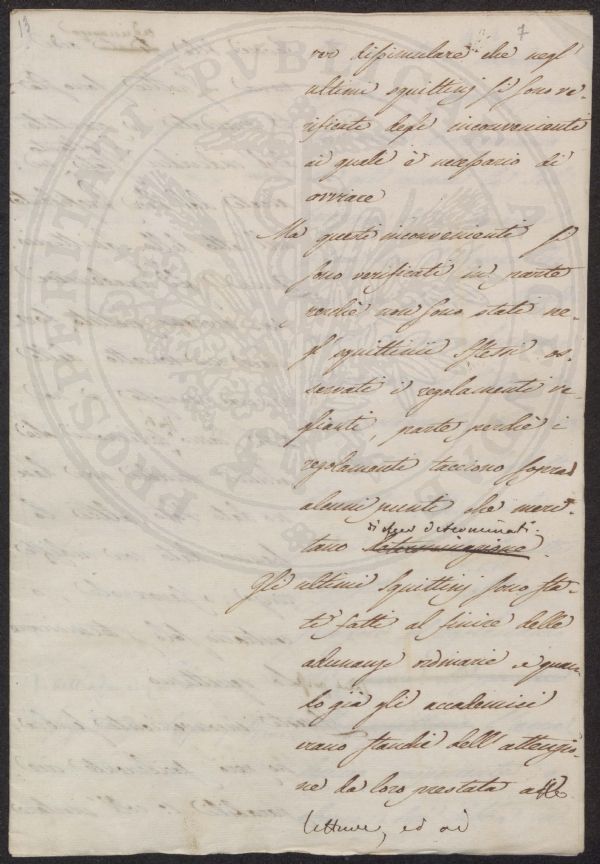 13
7
vo dissimulare che negl'
ultimi squittinj si sono ve-
rificati degl' inconvenienti
ai quali è necessario di
ovviare
Ma questi inconvenienti si
sono verificati in parte
perchè non sono stati ne-
gl' squittinii stessi os-
servati i regolamenti ve-
glianti, parte perchè i
regolamenti tacciono sopra
alcuni punti che meri-
di esser determinati.
tano determinazione
Gli ultimi Squittinj sono sta-
ti fatti al finire delle
adunanze ordinarie e quan
do già gli accademici
erano stanchi dell' attenzio-
ne da loro prestata alle
letture, ed ad
PROSPERITATI PUBLICAE AUGENDAE